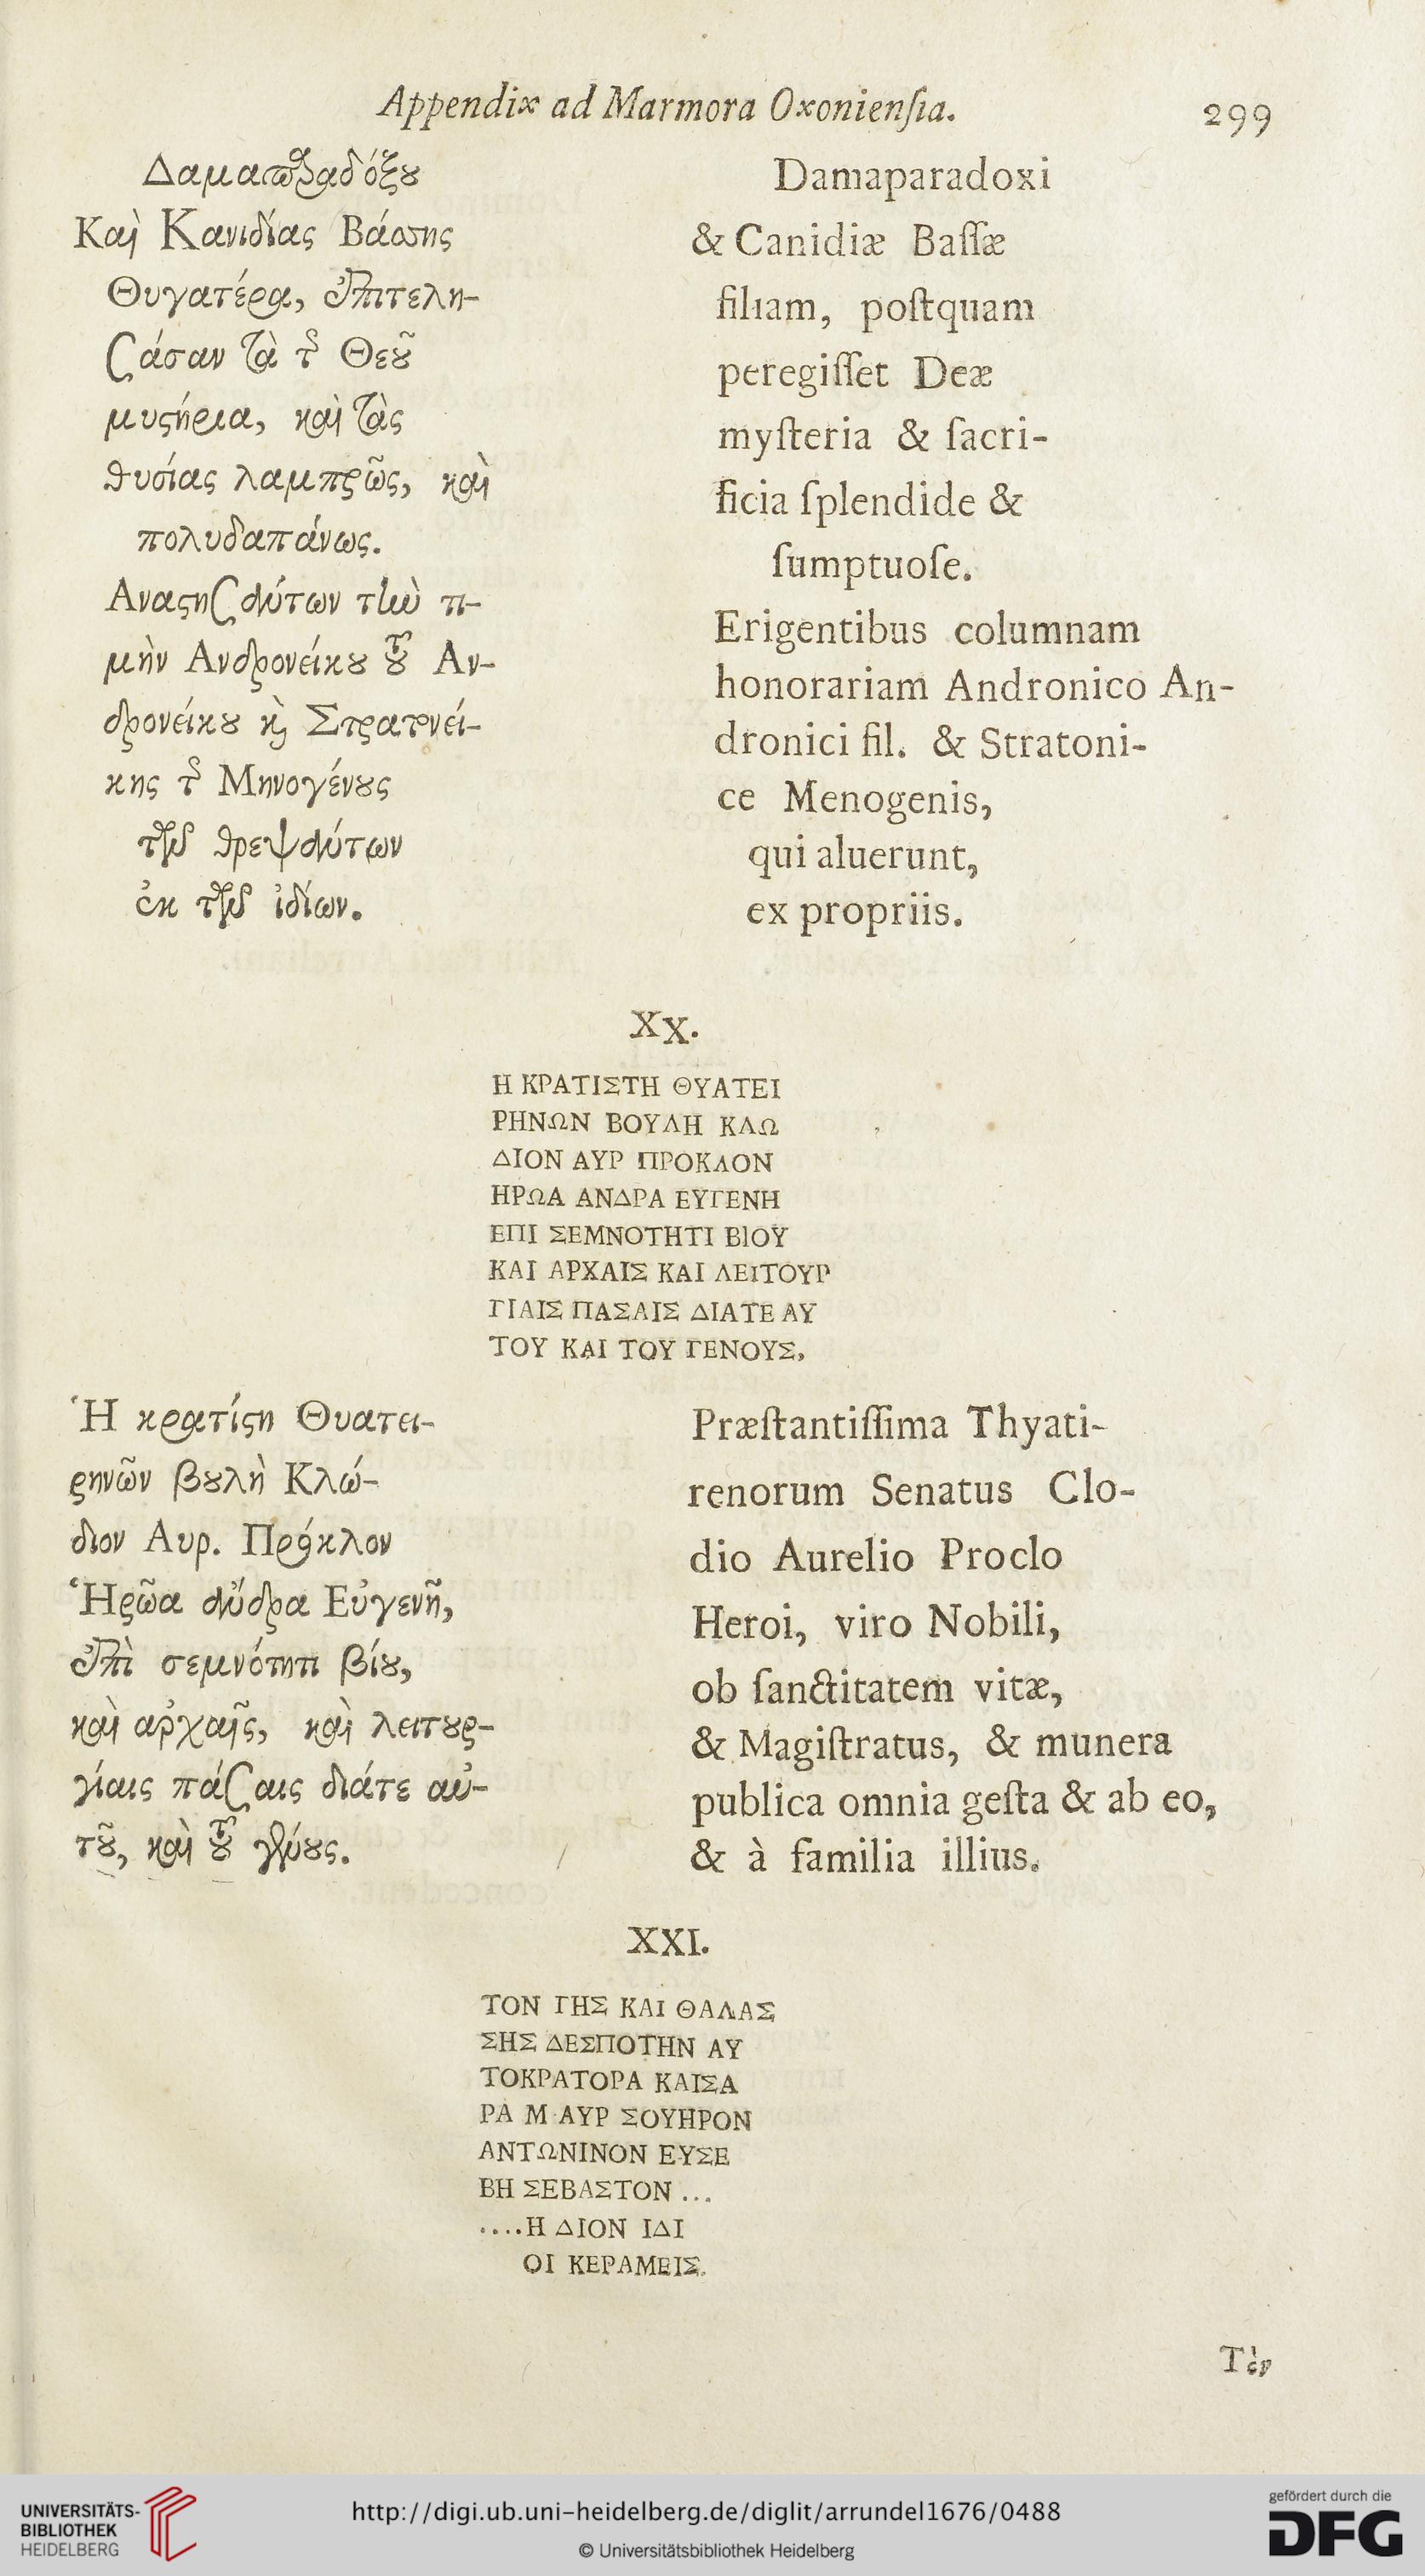 Appendix ad Marmora Oxonienſia.
299
Δαμαπαραδόξȣ
Καὶ Κανιδίας Βάσσης
Θυγατέρα, ἐπιτελη-
σάσαν τὰ τ῀ Θεȣ͂
μυϛήρια, καὶ τὰς
θυσίας λαμπρῶς, καὶ
πολυδαπάνως.
Αναϛησάντων τὴν τι-
μὴν Ανδρονείκȣ τȣ͂ Αν-
δρονείκȣ κ̀ Στρατονεί-
κης τ῀ Μηνογένȣς
τῶν θρεψάντων
ἐκ τῶν ἰδίων.
Damaparadoxi
& Canidiæ Baſſæ
filiam, poſtquam
peregiſſet Deæ
myſteria & ſacri-
ficia ſplendide &
ſumptuoſe.
Erigentibus columnam
honorariam Andronico An-
dronici fil. & Stratoni-
ce Menogenis,
qui aluerunt,
ex propriis.
XX.
Η ΚΡΑΤΙΣΤΗ ΘΥΑΤΕΙ
ΡΗΝΩΝ ΒΟΥΛΗ ΚΛΩ
ΔΙΟΝ ΑΥΡ ΠΡΟΚΛΟΝ
ΗΡΩΑ ΑΝΔΡΑ ΕΥΓΕΝΗ
ΕΠΙ ΣΕΜΝΟΤΗΤΙ ΒΙΟΥ
ΚΑΙ ΑΡΧΑΙΣ ΚΑΙ ΛΕΙΤΟΥΡ
ΓΙΑΙΣ ΠΑΣΑΙΣ ΔΙΑΤΕ ΑΥ
ΤΟΥ ΚΑΙ ΤΟΥ ΓΕΝΟΥΣ,
Ἡ κρατίϛη Θυατει-
ρηνῶν βȣλὴ Κλώ-
διον Αυρ. Πρόκλον
Ἡρῶα ἄνδρα Εὐγενῆ,
ἐπὶ σεμνότητι βίȣ,
καὶ αῤχαῖς, καὶ λειτȣρ-
γίαις πάσαις διάτε αὐ-
τȣ͂, καὶ τȣ͂ γένȣς.
Præſtantiſſima Thyati-
renorum Senatus Clo-
dio Aurelio Proclo
Heroi, viro Nobili,
ob ſanctitatem vitæ,
& Magiſtratus, & munera
publica omnia geſta & ab eo,
& à familia illius.
XXI.
ΤΟΝ ΓΗΣ ΚΑΙ ΘΑΛΑΣ
ΣΗΣ ΔΕΣΠΟΤΗΝ ΑΥ
ΤΟΚΡΑΤΟΡΑ ΚΑΙΣΑ
ΡΑ Μ ΑΥΡ ΣΟΥΗΡΟΝ
ΑΝΤΩΝΙΝΟΝ ΕΥΣΕ
ΒΗ ΣΕΒΑΣΤΟΝ ...
....Η ΔΙΟΝ ΙΔΙ
ΟΙ ΚΕΡΑΜΕΙΣ.
Τὸν
UNIVERSITÄTS-
BIBLIOTHEK
HEIDELBERG
http://digi.ub.uni-heidelberg.de/diglit/arrundel1676/0488
© Universitätsbibliothek Heidelberg
gefördert durch die
DFG